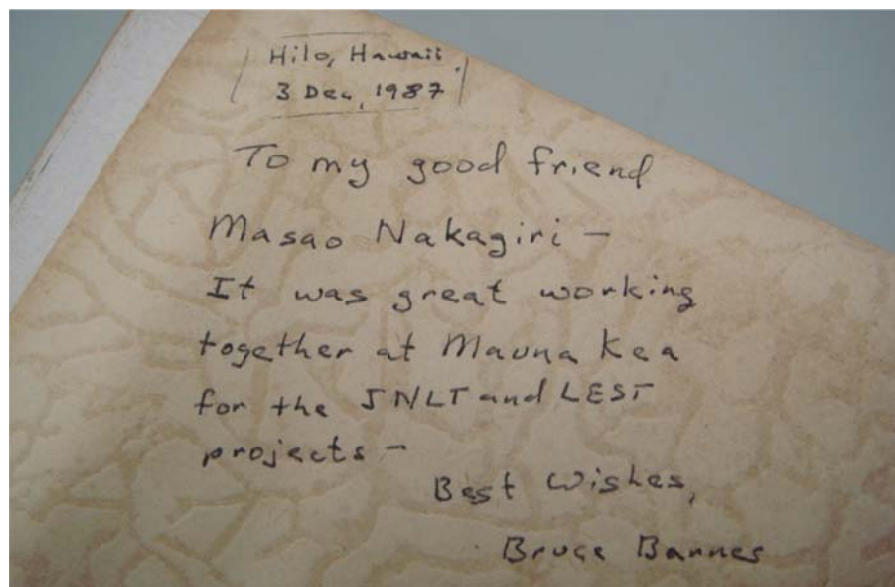 Hilo, Hawaii
3 Dec, 1987
To my good friend
Masao Nakagiri –
It was great working
together at Mauna Kea
for the JNLT and LEST
projects –
Best Wishes,
Bruce Barnes